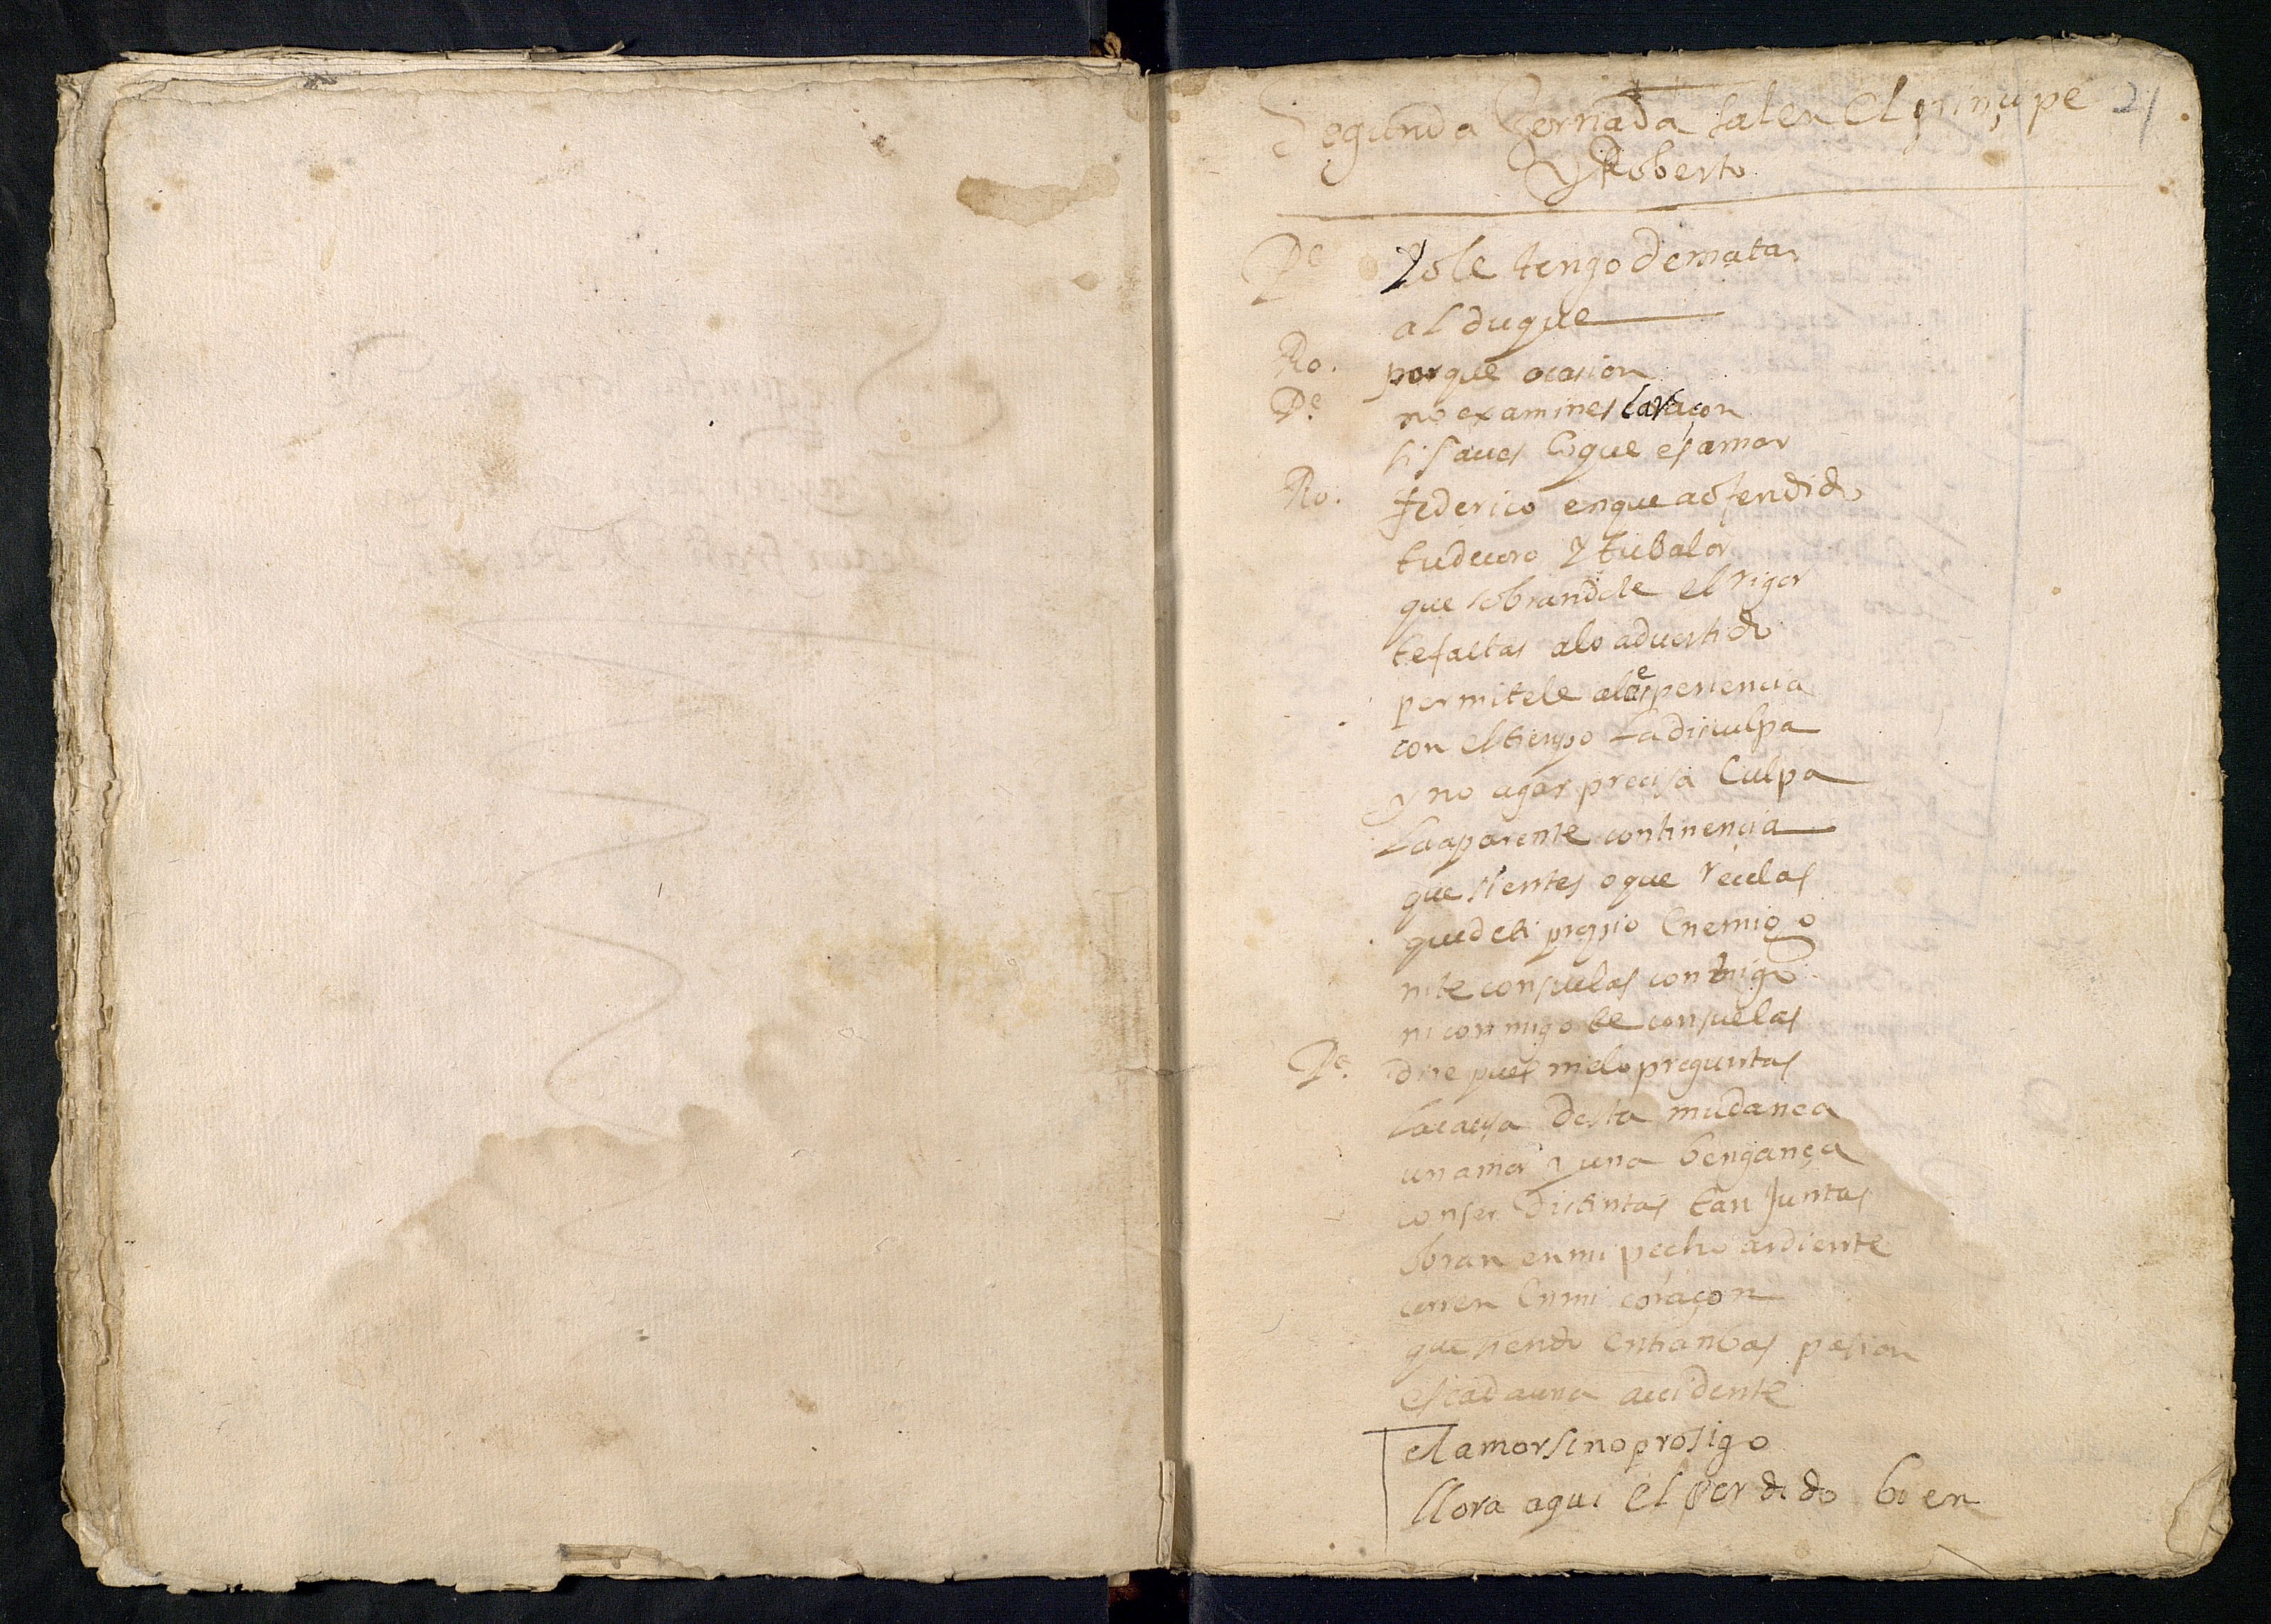 Segunda Jornada salen El prinçipe 21
Y Roberto
Pe Yo le tengo de matar
al duque
Ro. por que ocasion
Pe. no examines laraçon
si saues loque es amor
Ro. federico enque a ofendido
tu decoro y tu balor
que sobrandote el rigor
te faltas alo aduertido
permitele ala esperiencia
con el tienpo La disculpa
y no agas precisa Culpa
La aparente continençia
que sientes o que reçelas
que de ti propio Enemigo
nite consuelas contigo
ni con migo te consuelas
Pe. dire pues melo preguntas
La causa desta mudança
un amor y una bengança
con ser distintas tan Juntas
obran en mi pecho ardiente
corren En mi coraçon
que siendo entranbas pasion
es cada una accidente
el amor sino prosigo
llora aqui el perdido bien